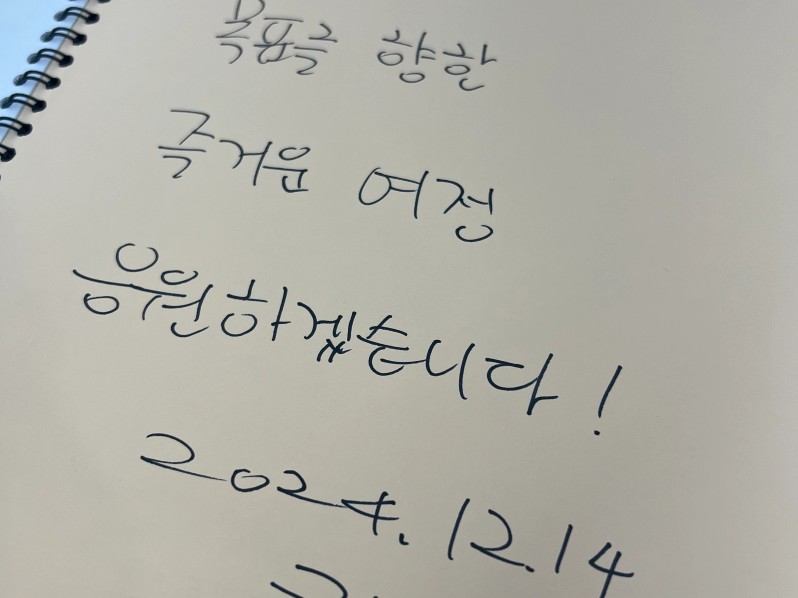 목표를 향한
즉거운 여정
응원하겠습니다!
2024.12.14